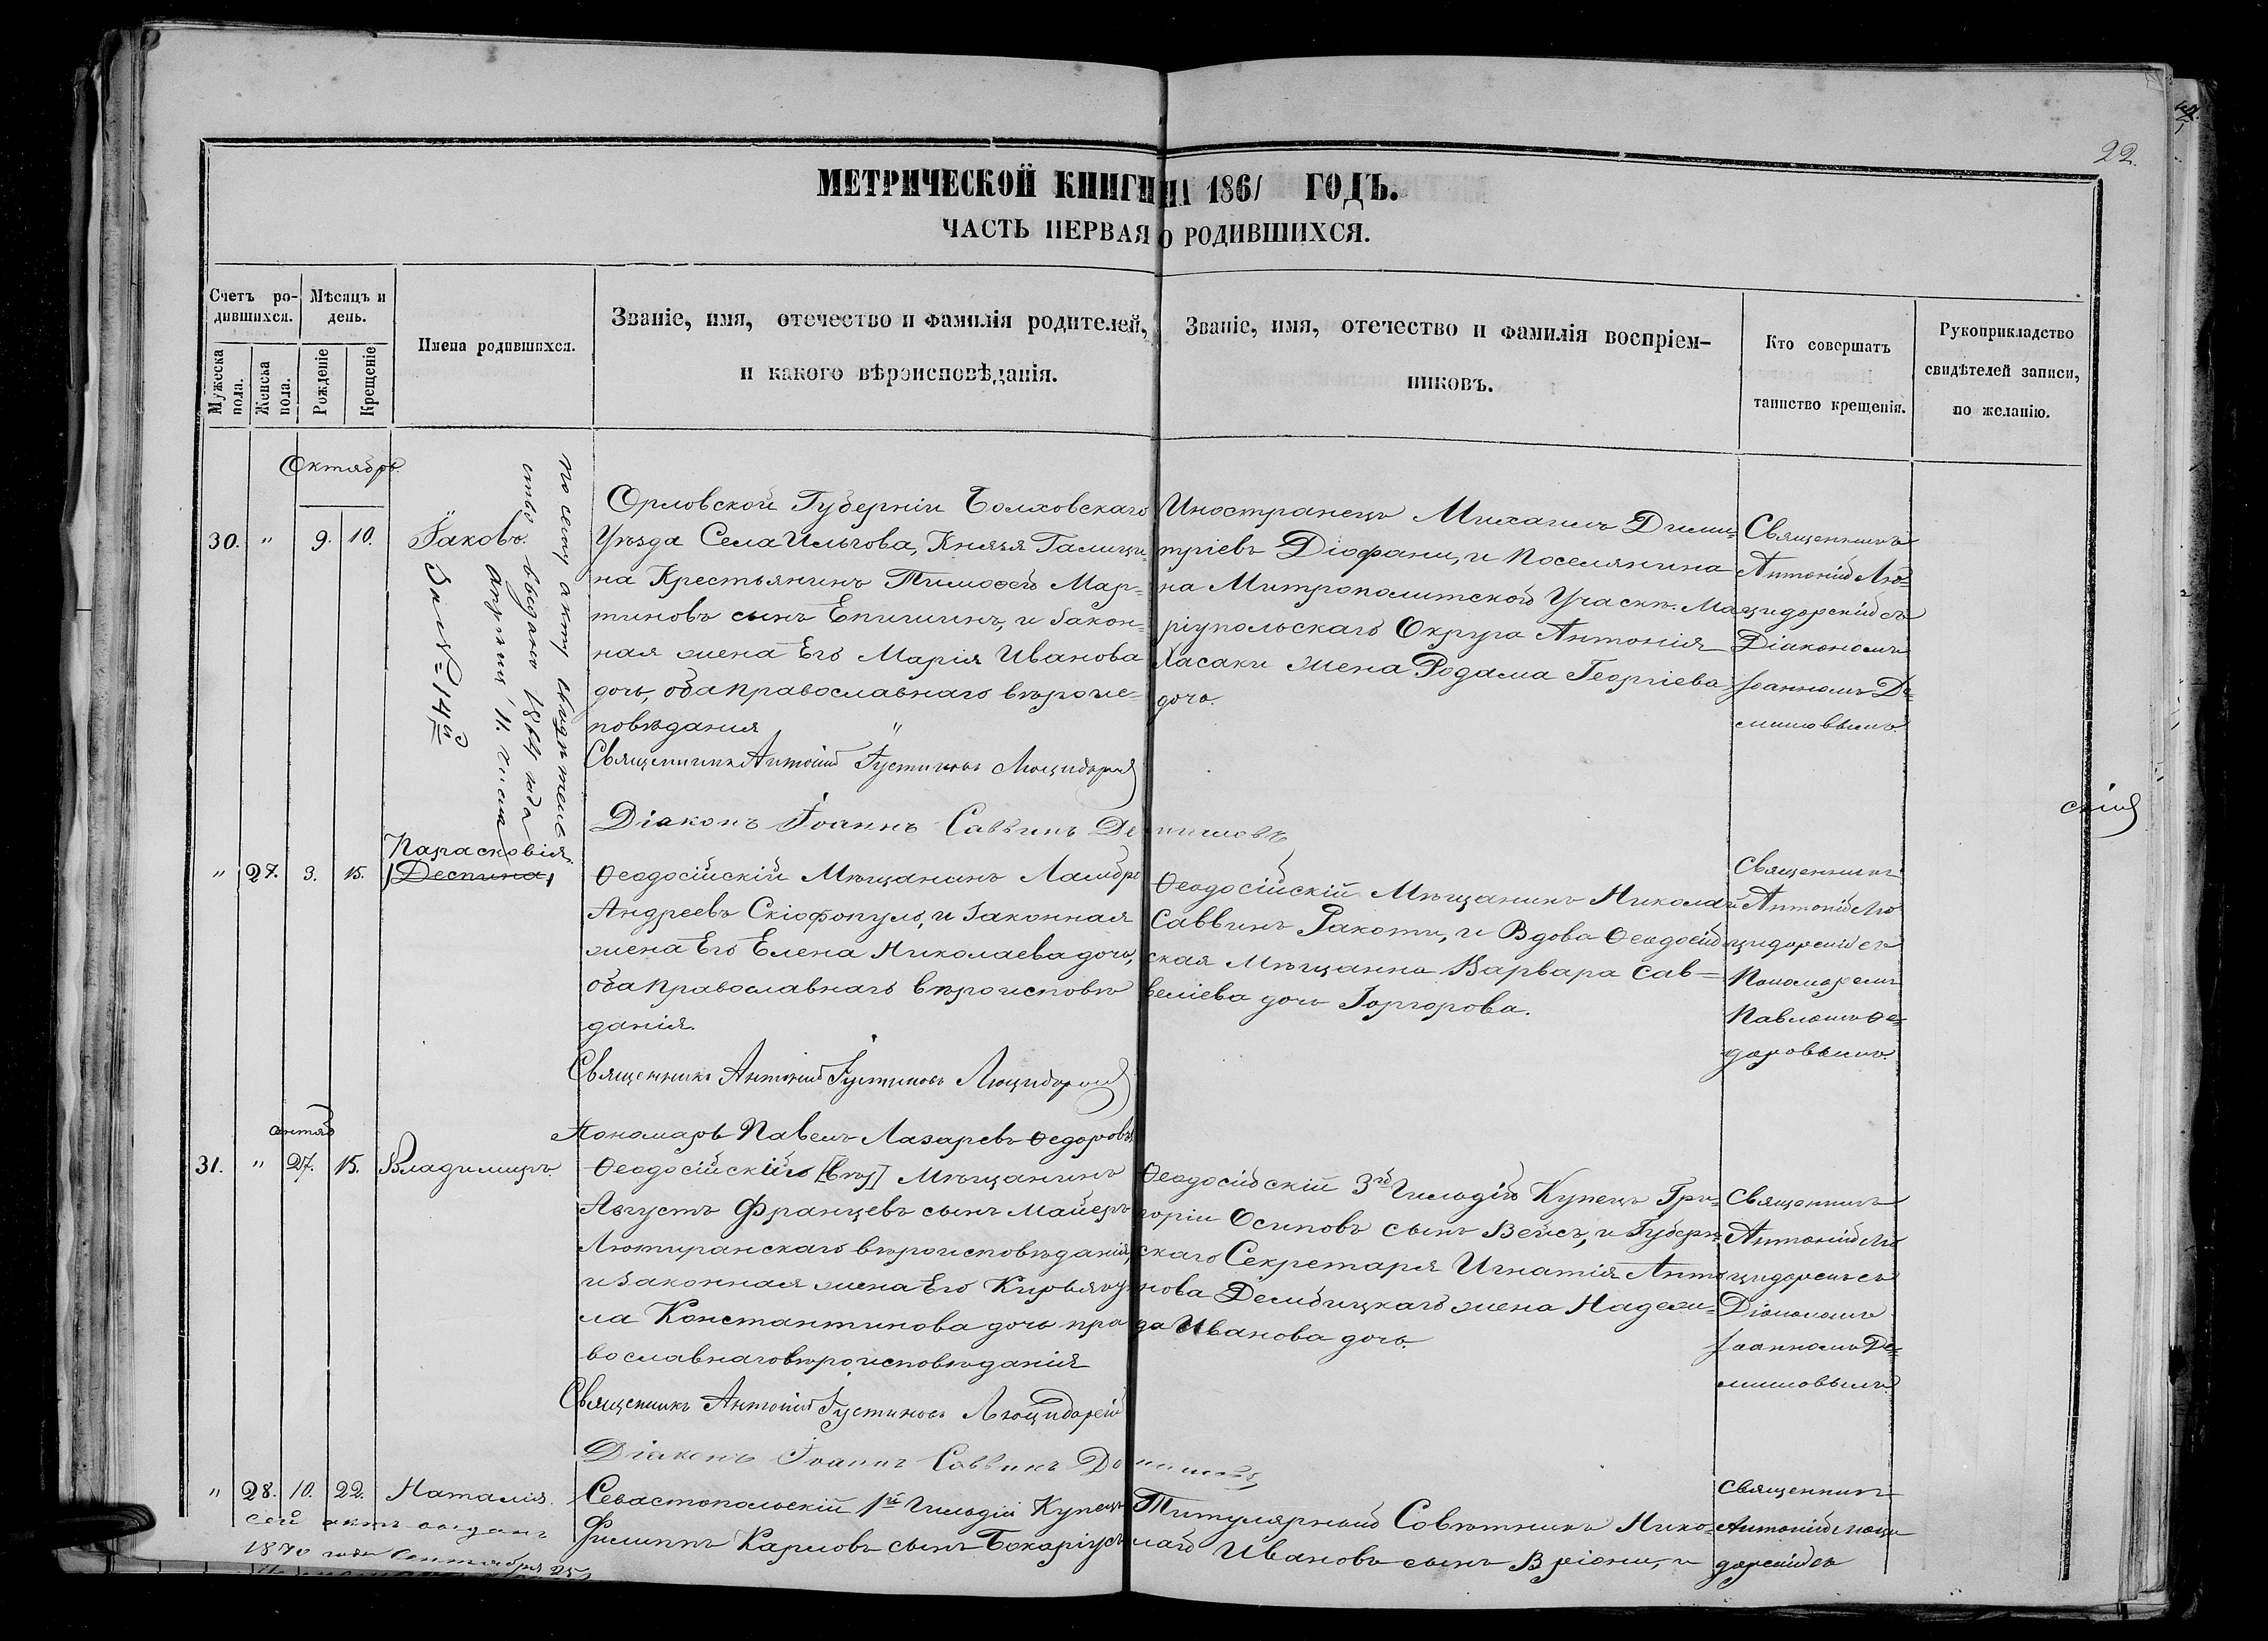 22.
МЕТРИЧЕСКОЙ КНИГИ НА 1861 ГОДЪ.
ЧАСТЬ ПЕРВАЯ О РОДИВШИХСЯ.
Счетъ ро-
дившихся.
Мужеска пола.
Женска пола.
Мѣсяцъ и
день.
Рожденіе
Крещеніе
Имена родившихся.
Званіе, имя, отечество и фамилія родителей,
и какого вѣроисповѣданія.
Званіе, имя, отечество и фамилія воспріем-
никовъ.
Кто совершатъ
таинство крещенія.
Рукоприкладство
свидѣтелей записи,
по желанію.
Октябрь.
30. " 9. 10. Іаковъ.
По сему акту свидѣтель
ство выдано 1864 года
апрѣля 11. числа
За № 14й
Орловской Губерніи Болховскаго
Уѣзда Села Ильгова, Князя Галици
на Крестьянинъ Тимоѳей Мар-
тиновъ сынъ Епишинъ, и Закон-
ная жена Его Марія Иванова
дочь, оба Православнаго вѣроис-
повѣданія "
Священникъ Антоній Іустиновъ Люцидарскій
Діаконъ Іоаннъ Саввинъ Демишовъ
Иностранецъ Михаилъ Дими-
тріевъ Діофани, и Поселянина
на Митрополитской Участк. Ма
ріупольскаго Округа Антонія
Хасаки жена Родама Георгіева
дочь.
Священникъ
Антоній Лю-
цидорскій съ
Діакономъ
Іоанномъ Де-
мишовымъ.
скій
" 27. 3. 15. Парасковія.
Деспина
Ѳеодосійскій Мѣщанинъ Ламбро
Андреевъ Скіофопуло, и Законная
жена Его Елена Николаева дочь,
оба Православнаго вѣроисповѣ
данія.
Священникъ Антоній Іустиновъ Люцидорскій
Пономарь Павелъ Лазаревъ Ѳедоровъ
Ѳеодосійскій Мѣщанинъ Николай
Саввинъ Ракоти, и Вдова Ѳеодосій
ская Мѣщанка Варвара Сав=
веліева дочь Горгорова.
Священникъ
Антоній Лю
цидорскій съ
Пономаремъ
Павломъ Ѳе-
доровымъ.
31. " 27. 15. Владимиръ.
Ѳеодосійскій Мѣщанинъ
Августъ Францевъ сынъ Майеръ
Лютиранскаго вѣроисповѣданія,
и Законная жена Его Кирьяку
ла Константинова дочь пра
вославнаго вѣроисповѣданія
Священникъ Антоній Іустиновъ Люцидорскій
Діаконъ Іоаннъ Саввинъ Демишовъ
Ѳеодосійскій 3й Гильдіи Купецъ Гри-
горій Осиповъ сынъ Вейсъ, и Губерн-
скаго Секретаря Игнатія Анто
нова Дембицкаго жена Надеж-
да Иванова дочь.
Священникъ
Антоній Лю
цидорскій съ
Діакономъ
Іоанномъ Де-
мишовымъ
" 28. 10. 22. Наталія.
Сей актъ выданъ
1870 года Сентября 25
Севастопольскій 1й Гильдіи Купецъ
Филиппъ Карловъ сынъ Бокаріусъ
Титулярный Совѣтникъ Нико-
лай Ивановъ сынъ Вріони, и
Священникъ
Антоній Люци
дорскій съ